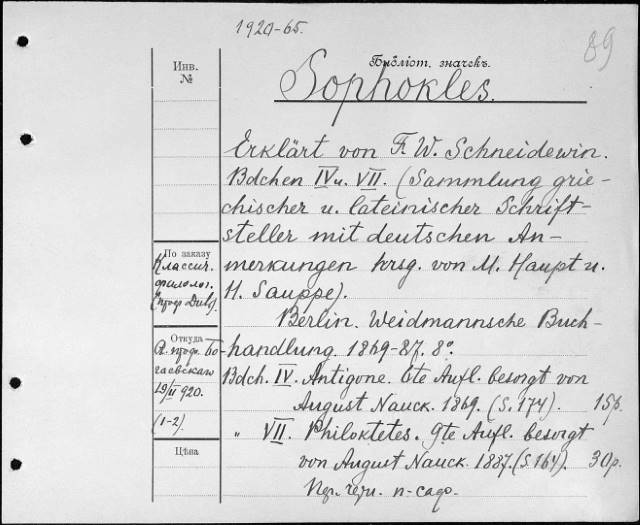 1920-65.
89
Инв. №
Библіот. значекъ.
Sophokles.
Erklärt von F. W. Schneidewin.
Bdchen IV u. VII. (Sammlung grie-
chischer u. lateinischer Schrift-
steller mit deutschen An-
merkungen hrsg. von M. Haupt u.
H. Sauppe).
Berlin. Weidmannsche Buch-
handlung. 1869-87. 8º.
Bdch. IV. Antigone. 6te Aufl. besorgt von
August Nauck. 1869. (S. 174). 15р.
" VII. Philoktetes. 9te Aufl. besorgt
von August Nauck. 1887. (S. 164). 30р.
По заказу
Классич.
филолог.
Откуда
19/II 920.
(1-2)
Цѣна